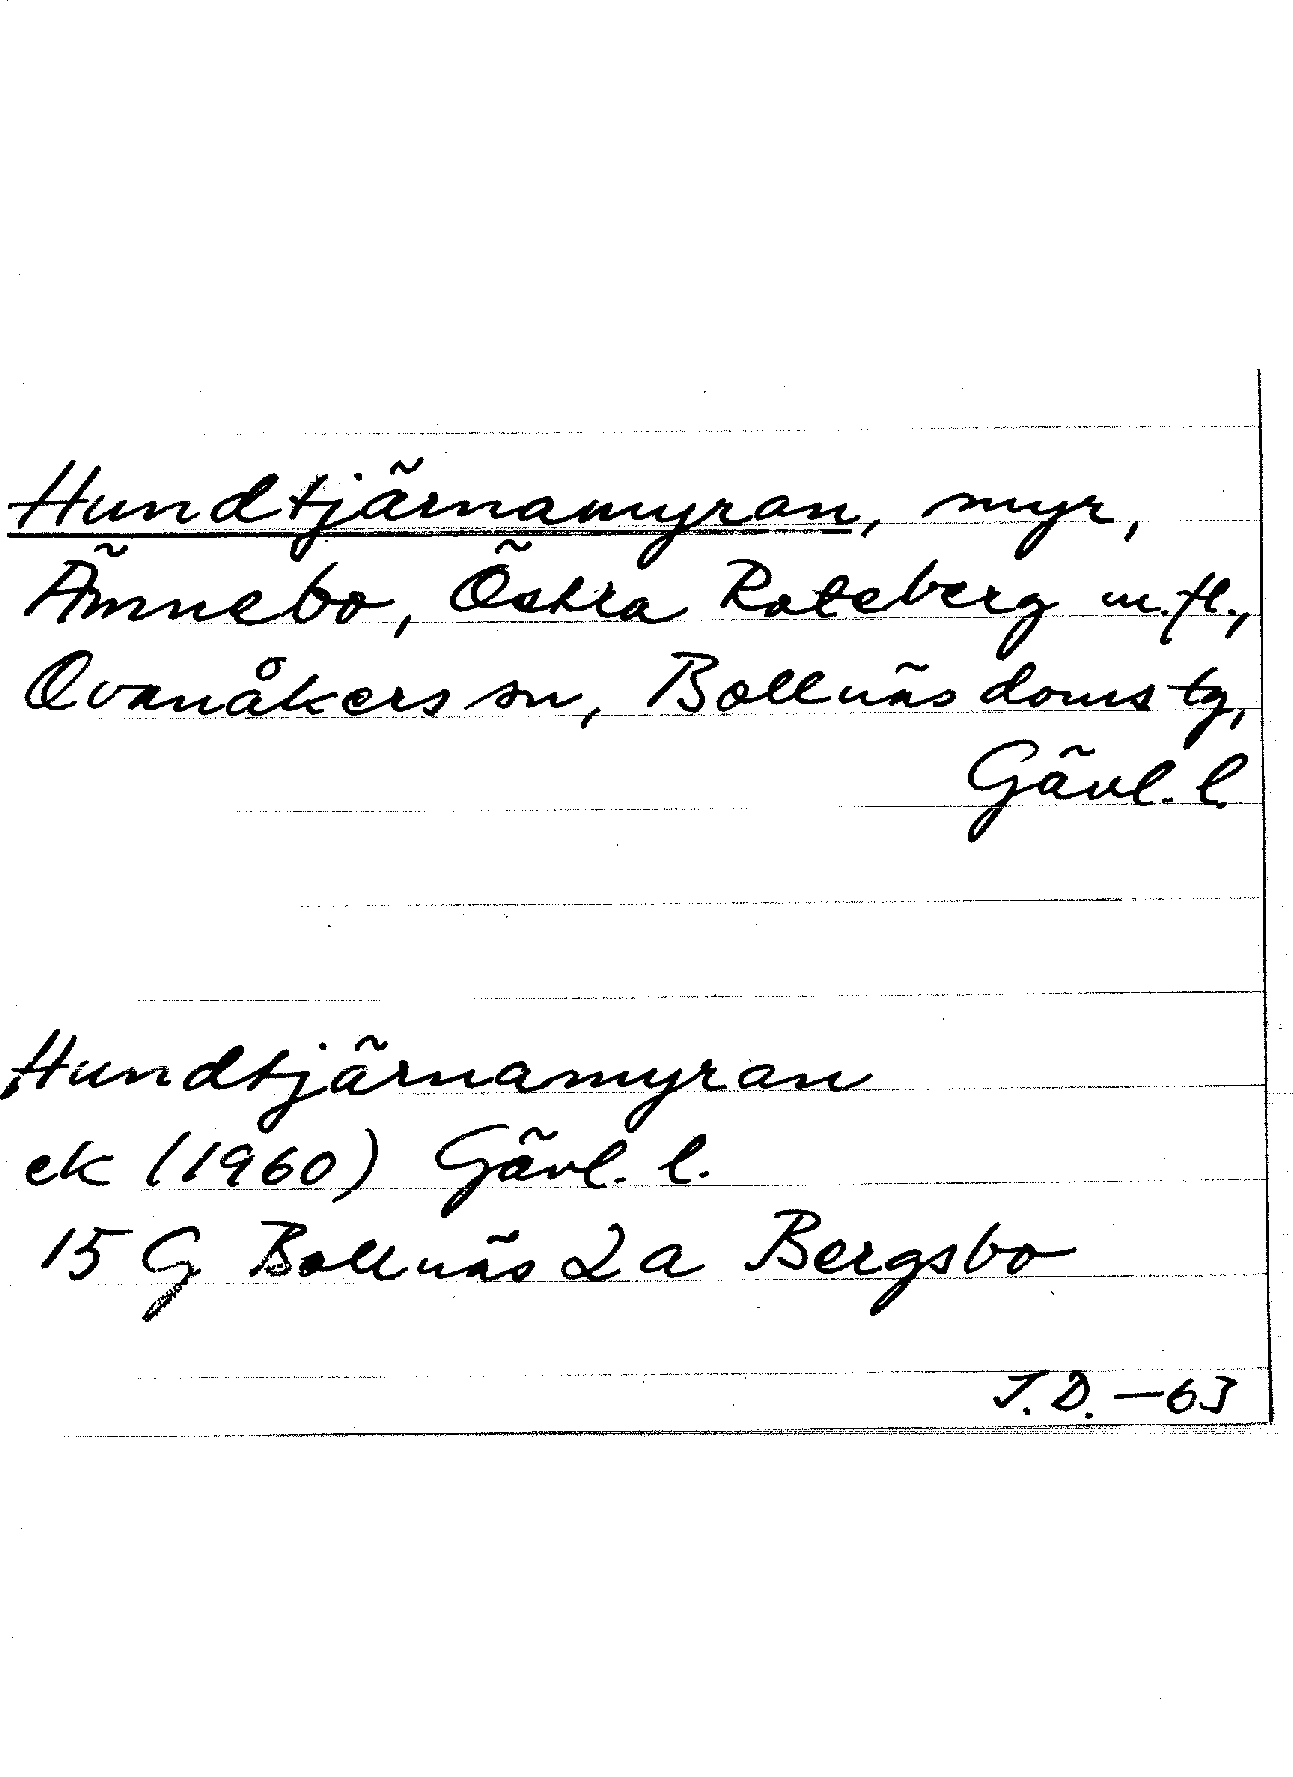 Hundtjärnamyran, myr,
Ämnebo, Östra Roteberg m.fl.,
Ovanåkers sn, Bollnäs domstg,
Gävl. l.
Hundtjärnamyran
ek (1960) Gävl. l.
15 G Bollnäs 2a Bergsbo
J.D. –63